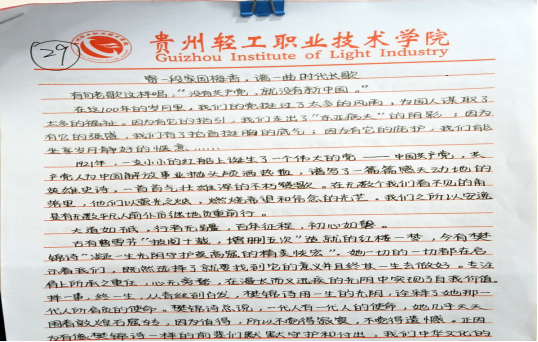 29
贵州轻工职业技术学院
Guizhou Institute of Light Industry
寄一段家国梅香，谱一曲时代长歌
有句老歌这样唱，"没有共产党，就没有新中国。"
在这100年的岁月里，我们的党挺过了太多的风雨，为国人谋取了
太多的福祉。因为有它的指引，我们走出了"东亚病夫"的阴影；因为
有它的强盛，我们有了抬首挺胸的底气；因为有它的庇护，我们有能
坐享岁月静好的惬意……
1921年，一支小小的红船上诞生了一个伟大的党——中国共产党，共
产党人为中国解放事业抛头颅洒热血，谱写了一篇篇感天动地的
英雄史诗，一首首气壮雄浑的不朽赞歌。在无数个我们看不见的角
落里，他们以萤光之微，燃烧希望和信念的光芒。我们之所以安逸
是有无数平凡人前仆后继地负重前行。
大道如砥，行者无疆，百年征程，初心如磐。
古有曹雪芹"披阅十载，增删五次"造就的红楼一梦，今有樊
锦诗"凝一生光阴守护莫高窟的精美恢宏"。她一切的一切都在启
示着我们，既然选择了就要找到它的意义并且终其一生去做好。专注
肩上所承之重任，心无旁骛，在漫长而又迅疾的光阴中实现了自我价值
择一事，终一生，从青丝到白发，樊锦诗用一生的光阴，诠释了她那一
代人所肩负的使命。樊锦诗总说，一代人有一代人的使命，她几乎天天
围着敦煌石窟转，因为值得，所以不觉得寂寞，不觉得遗憾。正因
为有像樊锦诗一样的前辈们默默守护和付出，我们中华文化的